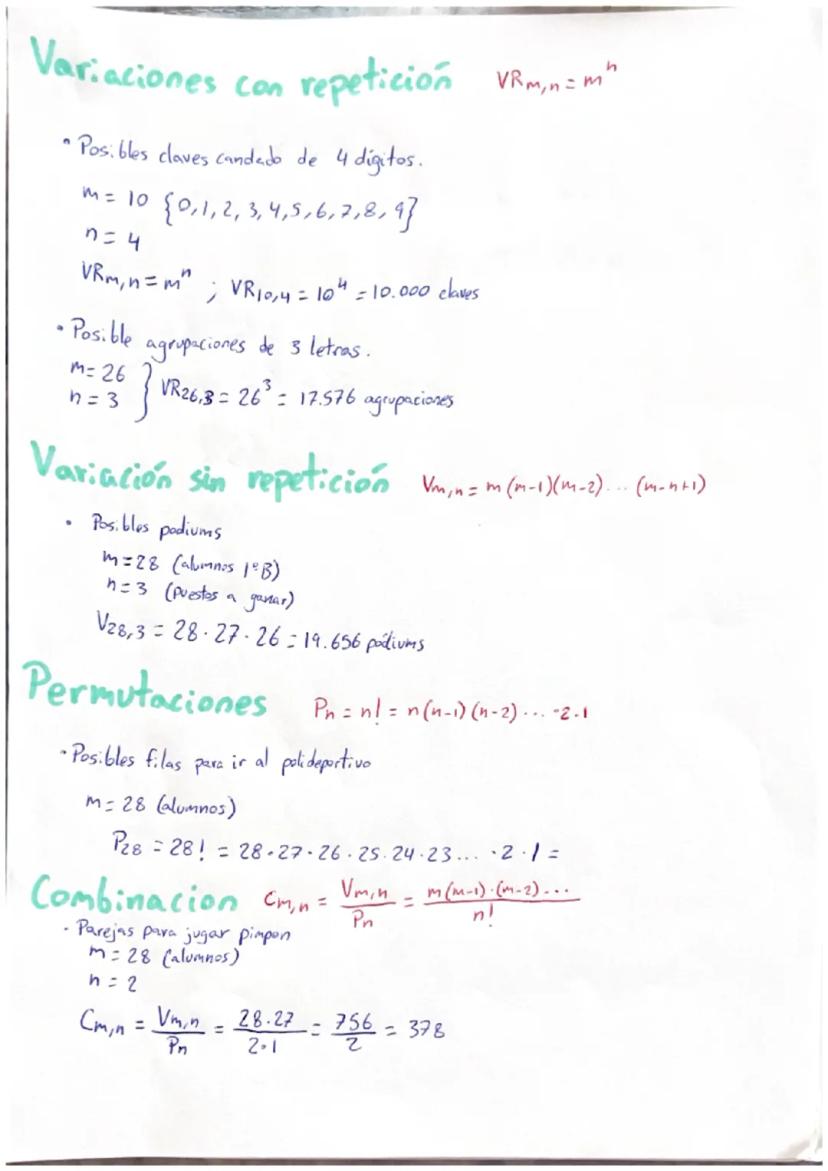 Variaciones con repetición VRm,n = m^n
• Posibles claves candado de 4 dígitos.
m = 10 {0,1,2,3,4,5,6,7,8,9}
n = 4
VRm,n = m^n ; VR10,4 = 10^4 = 10.000 claves
• Posible agrupaciones de 3 letras.
m = 26
n = 3 } VR26,3 = 26^3 = 17.576 agrupaciones
Variación sin repetición Vm,n = m (m-1)(m-2) ... (m-n+1)
• Posibles podiums
m = 28 (alumnos 1º B)
n = 3 (puestos a ganar)
V28,3 = 28 · 27 · 26 = 19.656 pódiums
Permutaciones Pn = n! = n(n-1)(n-2) ... · 2 · 1
• Posibles filas para ir al polideportivo
m = 28 (alumnos)
P28 = 28! = 28 · 27 · 26 · 25 · 24 · 23 ... · 2 · 1 =
Combinacion Cm,n = Vm,n / Pn = m(m-1)·(m-2)... / n!
• Parejas para jugar pimpon
m = 28 (alumnos)
n = 2
Cm,n = Vm,n / Pn = 28·27 / 2·1 = 756 / 2 = 378